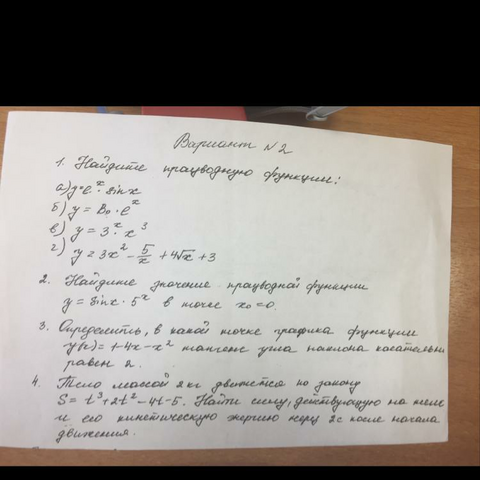 Вариант №2
1. Найдите працводную функции:
а) y=e^x · sin x
б) y = B₀ · e^x
в) y = 3^x · x^3
г) y = 3x^2 - 5/x + 4√x + 3
2. Найдите значение працводной функции
y = sin x · 5^x в точке x₀ = 0.
3. Определить, в какой точке графика функции
y(x) = 1-4x-x^2 тангенс угла наклона касательны
равен 2.
4. Тело массой 2 кг движется по закону
S = t^3+2t^2-4t-5. Найти силу, действующую на тело
и его кинетическую энергию через 2с после начала
движения.